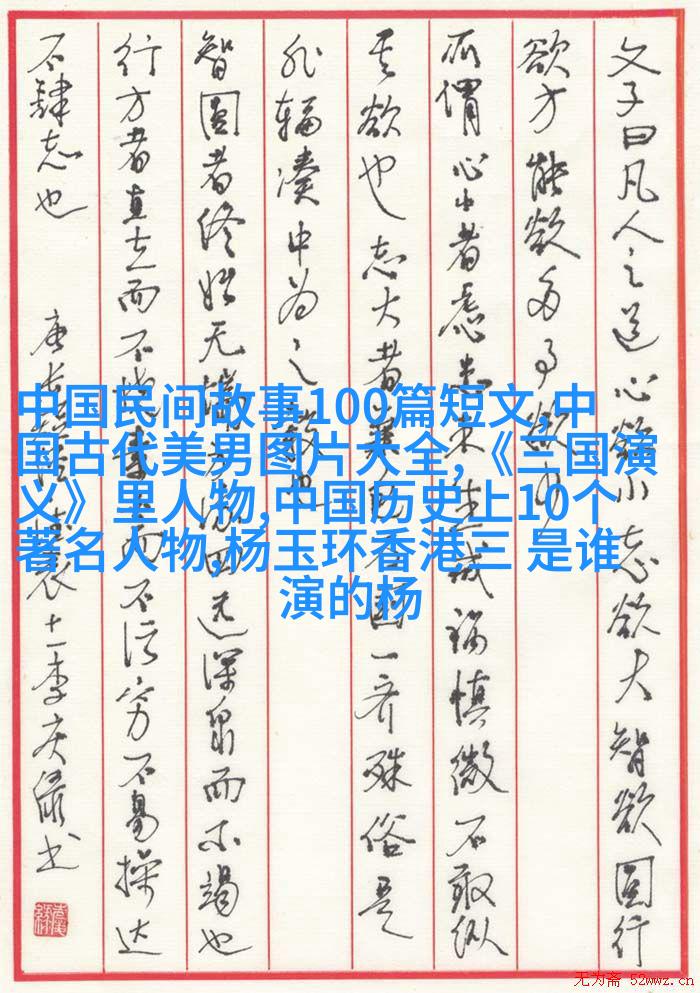 文子曰凡人之道心欲小志欲大智欲圆行
欲方能欲多事欲少
所谓心小者虑患未生戒祸慎微不敢纵
其欲也志大者兼国一齐殊俗是
非辐凑中为之毂也
智圆者终始无端方流四远深泉而不竭也
行方者直立而不挠素而不污穷不易操达
不肆志也
中国民间故事100篇短文,中
国古代美男图片大全,《三国演
义》里人物,中国历史上10个
著名人物,杨玉环香港三 是谁
演的杨
无为斋 52wwz.cn